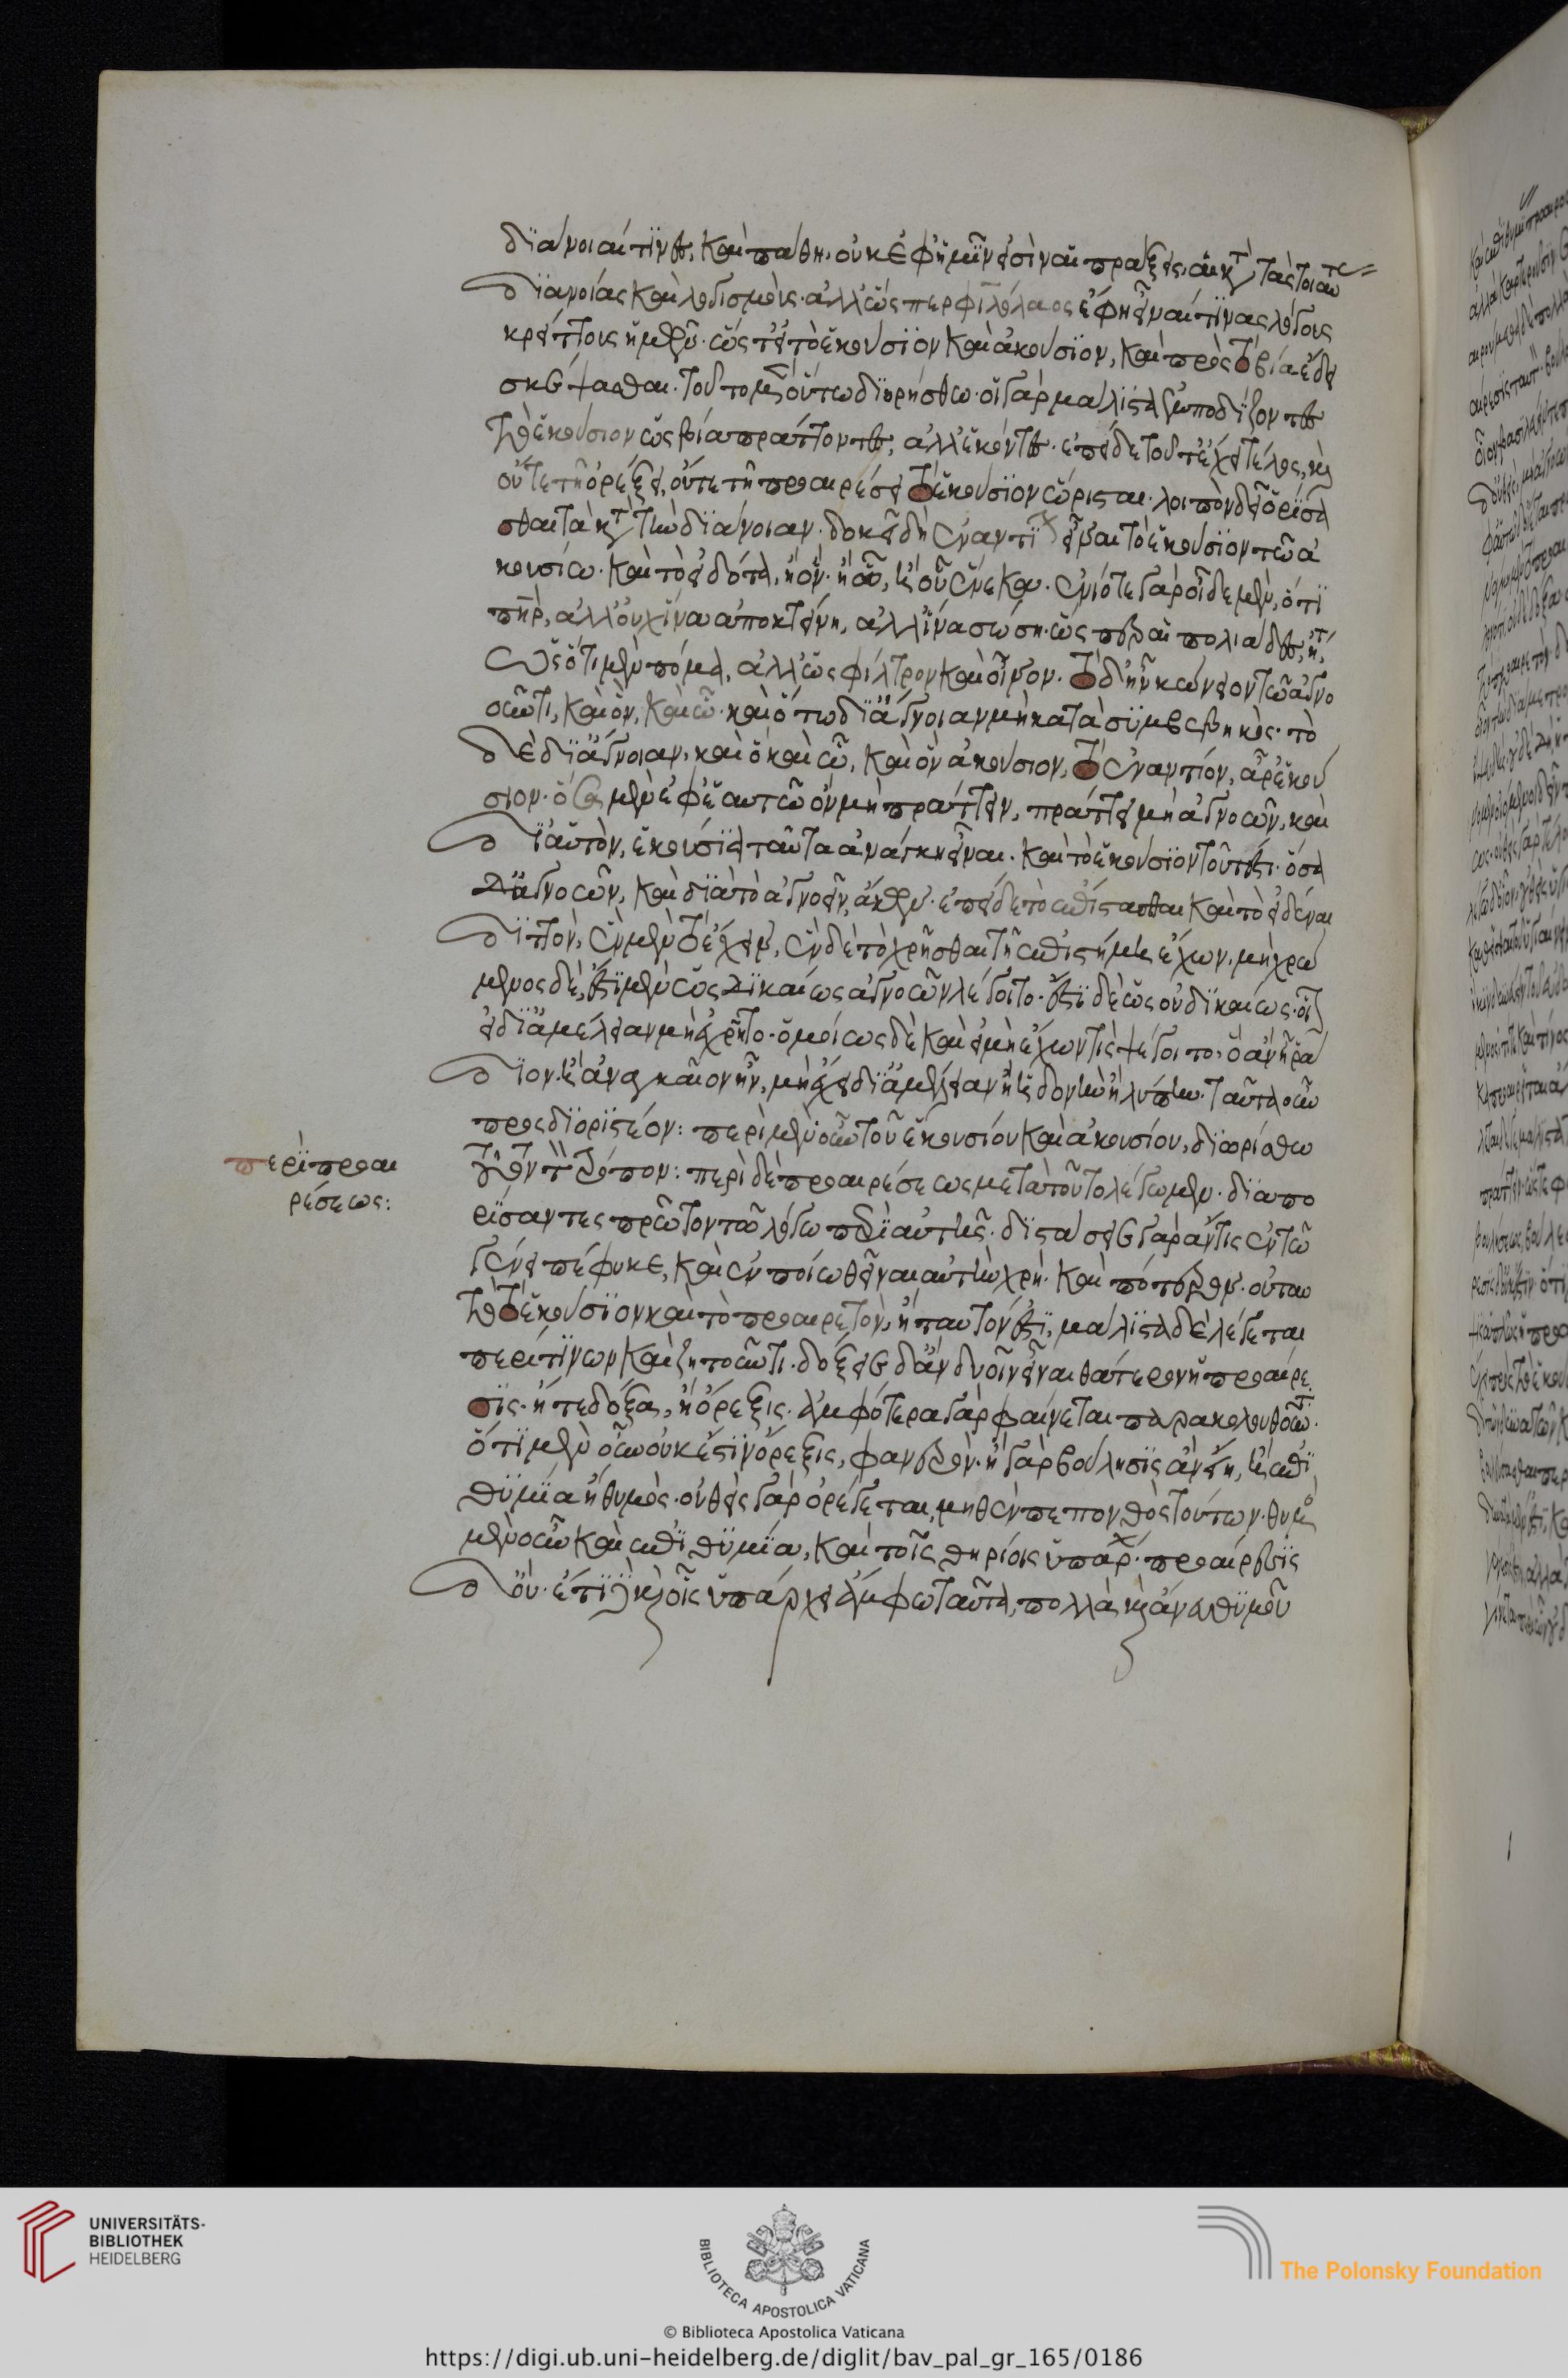 διάνοιαί τινες, καὶ πάθη. οὐκ ἐφ' ἡμῖν εἰσὶν αἱ πράξεις, αἱ κατὰ τὰς τοιαύτας
διανοίας καὶ λογισμοὺς. ἀλλ' ὥσπερ φιλόλαος ἔφη εἶναί τινας λόγους
κρείττους ἡμῶν. ὥς τ' εἰ τὸ ἑκούσιον καὶ ἀκούσιον, καὶ πρὸς τὸ βία ἔδει
σκέψασθαι. τοῦτο μὲν οὕτω διηρήσθω. οἱ γὰρ μάλιστα ἐμποδίζοντες
τὸ ἑκούσιον ὡς βία πράττοντες, ἀλλ' ἑκόντες. ἐπεὶ δὲ τοῦτ' ἔχει τέλος, καὶ
οὔτε τῇ ὀρέξει, οὔτε τῇ προαιρέσει τὸ ἑκούσιον ὥρισται. λοιπὸν δεῖ ὁρίσα
σθαι τὰ κατὰ τὴν διάνοιαν. δοκεῖ δὴ ἐναντίον εἶναι τὸ ἑκούσιον τῶ ἀ
κουσίω. καὶ τὸ εἰδότα, ἢ ὃν. ἢ ᾧ, ἢ οὗ ἕνεκα. ἐνίοτε γὰρ οἶδε μὲν, ὅτι
πηρ, ἀλλ' οὐχ ἵνα ἀποκτείνη, ἀλλ' ἵνα σώση. ὥσπερ αἱ πολιάδες, ἤτ
ὡς ὅτι μὲν πόμα, ἀλλ' ὡς φίλτρον καὶ οἶνον. τὸ δ' ἦν κώνειον τῶ ἀγνο
οῦντι, καὶ ὃν, καὶ ᾧ. καὶ ὅ τω δι' ἄγνοιαν μὴ κατὰ συμβεβηκὸς. τὸ
δὲ δι' ἄγνοιαν, καὶ ὃ καὶ ᾧ, καὶ ὃν ἀκούσιον, τὸ ἐναντίον, ἆρ' ἑκού
σιον. ὅσα μὲν ἐφ' ἑαυτῶ ὂν μὴ πράττειν, πράττει μὴ ἀγνοῶν, καὶ
δι' αὑτὸν, ἑκούσια ταῦτα ἀνάγκη εἶναι. καὶ τὸ ἑκούσιον τοῦτ' ἐστι. ὅσα
δ' ἀγνοῶν, καὶ διὰ τὸ ἀγνοεῖν, ἄκων. ἐπεὶ δὲ τὸ ἐπίστασθαι καὶ τὸ εἰδέναι
διττὸν, ἓν μὲν τὸ ἔχειν, ἓν δὲ τὸ χρῆσθαι τῆ ἐπιστήμη ἔχων, μὴ χρώ
μενος δὲ, ἔστι μὲν ὡς δικαίως ἀγνοῶν λέγοιτο. ἔστι δὲ ὡς οὐ δικαίως. οἷον
εἰ δι' ἀμέλειαν μὴ ἐχρῆτο. ὁμοίως δὲ καὶ εἰ μὴ ἔχων τὶς ψέγοιτο, ὃ ἂν ἦ ῥᾴ
διον. ἢ ἀναγκαῖον ἦν, μὴ ἔχει δι' ἀμέλειαν ἢ ἡδονὴν ἢ λύπην. ταῦτα οὖν
προσδιοριστέον: περὶ μὲν οὖν τοῦ ἑκουσίου καὶ ἀκουσίου, διωρίσθω
τοῦτον τὸν τρόπον: περὶ δὲ προαιρέσεως μετὰ τοῦτο λέγωμεν. διαπο
περὶ προαι
ρέσεως:
ρίσαντες πρῶτον τῶ λόγω περὶ αὐτῆς. διστάσειε γὰρ ἄν τις ἐν τῶ
γένει πέφυκε, καὶ ἐν ποίω θεῖναι αὐτὴν χρὴ. καὶ πότερον. οὐ ταυ
τὸ τὸ ἑκούσιον καὶ τὸ προαιρετὸν, ἢ ταυτόν ἐστι, μάλιστα δὲ λέγεται
περί τινων καὶ ζητοῦντι. δόξειε δ' ἂν δυοῖν εἶναι θάτερον ἡ προαίρε
σις. ἤτε δόξα, ἢ ὄρεξις. ἀμφότερα γὰρ φαίνεται παρακολουθοῦντ.
ὅτι μὲν οὖν οὐκ ἔστιν ὄρεξις, φανερὸν. ἢ γὰρ βούλησις ἂν εἴη, ἢ ἐπι
θυμία ἢ θυμὸς. οὐθεὶς γὰρ ὀρέγεται, μηθὲν πεπονθὸς τούτων. θυμὸς
μὲν οὖν καὶ ἐπιθυμία, καὶ τοῖς θηρίοις ὑπάρχ. προαίρεσις
δ' οὔ. ἔτι δὲ καὶ οἷς ὑπάρχει ἄμφω ταῦτα, πολλὰ καὶ ἄνευ θυμοῦ
UNIVERSITÄTS-
BIBLIOTHEK
HEIDELBERG
BIBLIOTECA APOSTOLICA VATICANA
The Polonsky Foundation
© Biblioteca Apostolica Vaticana
https://digi.ub.uni-heidelberg.de/diglit/bav_pal_gr_165/0186